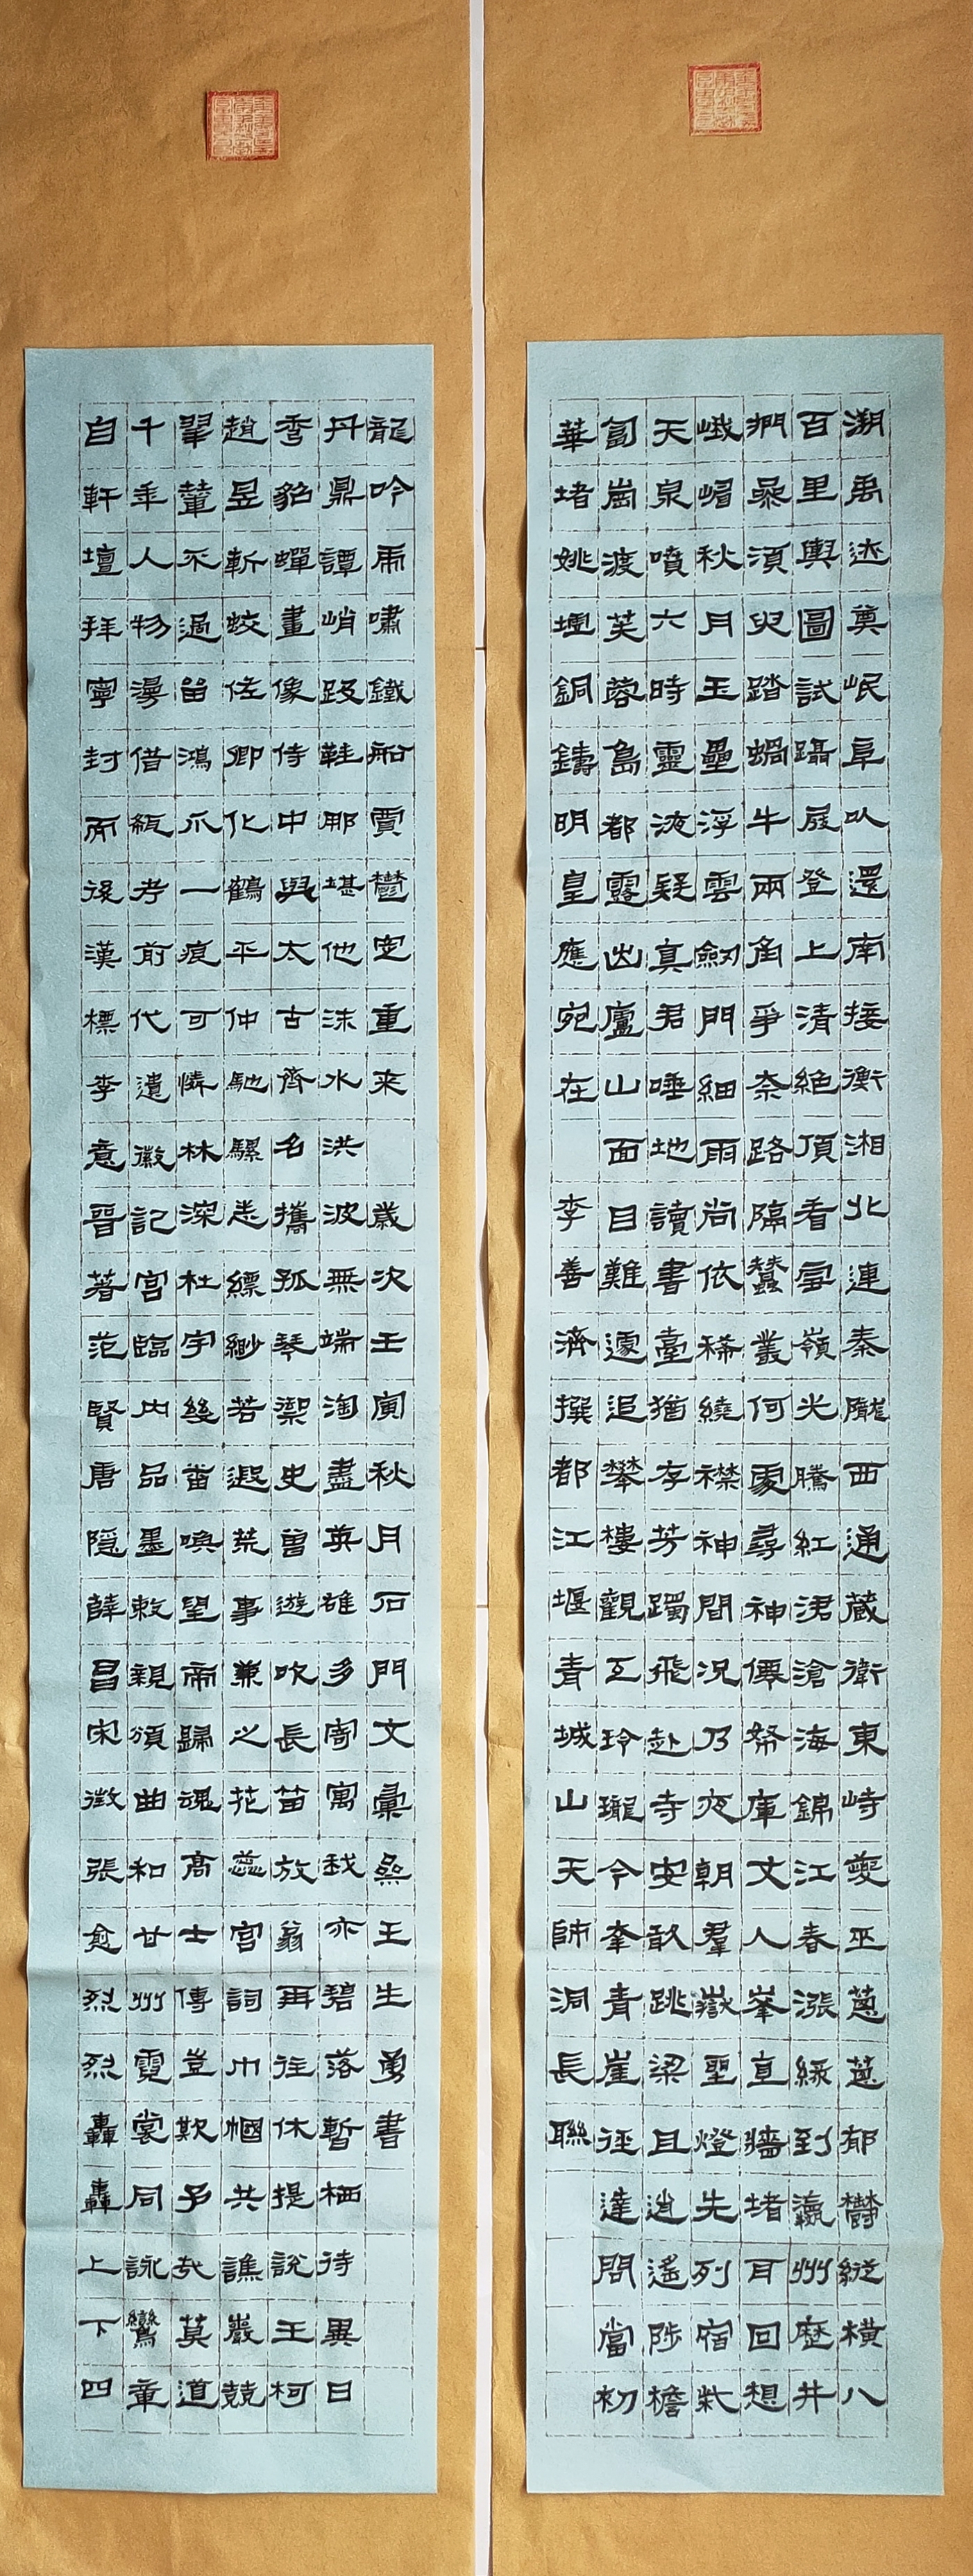 溯禹迹奠岷阜以還南接衡湘北連秦隴西通藏衛東峙夔巫葱葱郁鬱縱橫八
百里輿圖試躡屐登上清絕頂看雪嶺光騰紅浴滄海錦江春漲綠到瀛洲歷井
捫參須臾踏蝸牛兩角爭奈路隔蠶叢何處尋神僊帑庫丈人峯直牆堵耳回想
峨嵋秋月玉壘浮雲劍門細雨尚依稀繞襟袖間況乃夜朝羣嶽聖燈先列宿柴
天泉噴六時靈液疑真君唾地讀書臺猶存芳躅飛赴寺安敢跳梁且逍遙陟檐
匐崗渡芙蓉島都露出廬山面目難邃追攀樓觀互玲瓏今幸青崖徑達問當初
華堵姚墟銅鑄明皇應宛在 李善濟撰都江堰青城山天師洞長聯
自軒壇拜寧封而後漢標李意晉著范賢唐隱薛昌宋徵張愈烈烈轟轟上下四
千年人物漫借瓻考前代遺徽記宮臨內品墨敕親頒曲和甘州霓裳同詠鸞章
翬輦不過留鴻爪一痕可憐林深杜宇幾番喚望帝歸魂高士傳豈欺予哉莫道
趙昱斬蛟佐卿化鶴平仲馳騾悉縹緲若遐荒事兼之花蕊宮詞巾幗共譙巖競
秀貂蟬畫像侍中與太古齊名攜孤琴禦史曾遊吹長笛放翁再往休提說王柯
丹鼎譚峭趿鞋那堪他沫水洪波無端淘盡英雄多寄寓我亦碧落暫栖待異日
龍吟虎嘯鐵船賈鬱定重來 歲次壬寅秋月石門文彙王生勇書